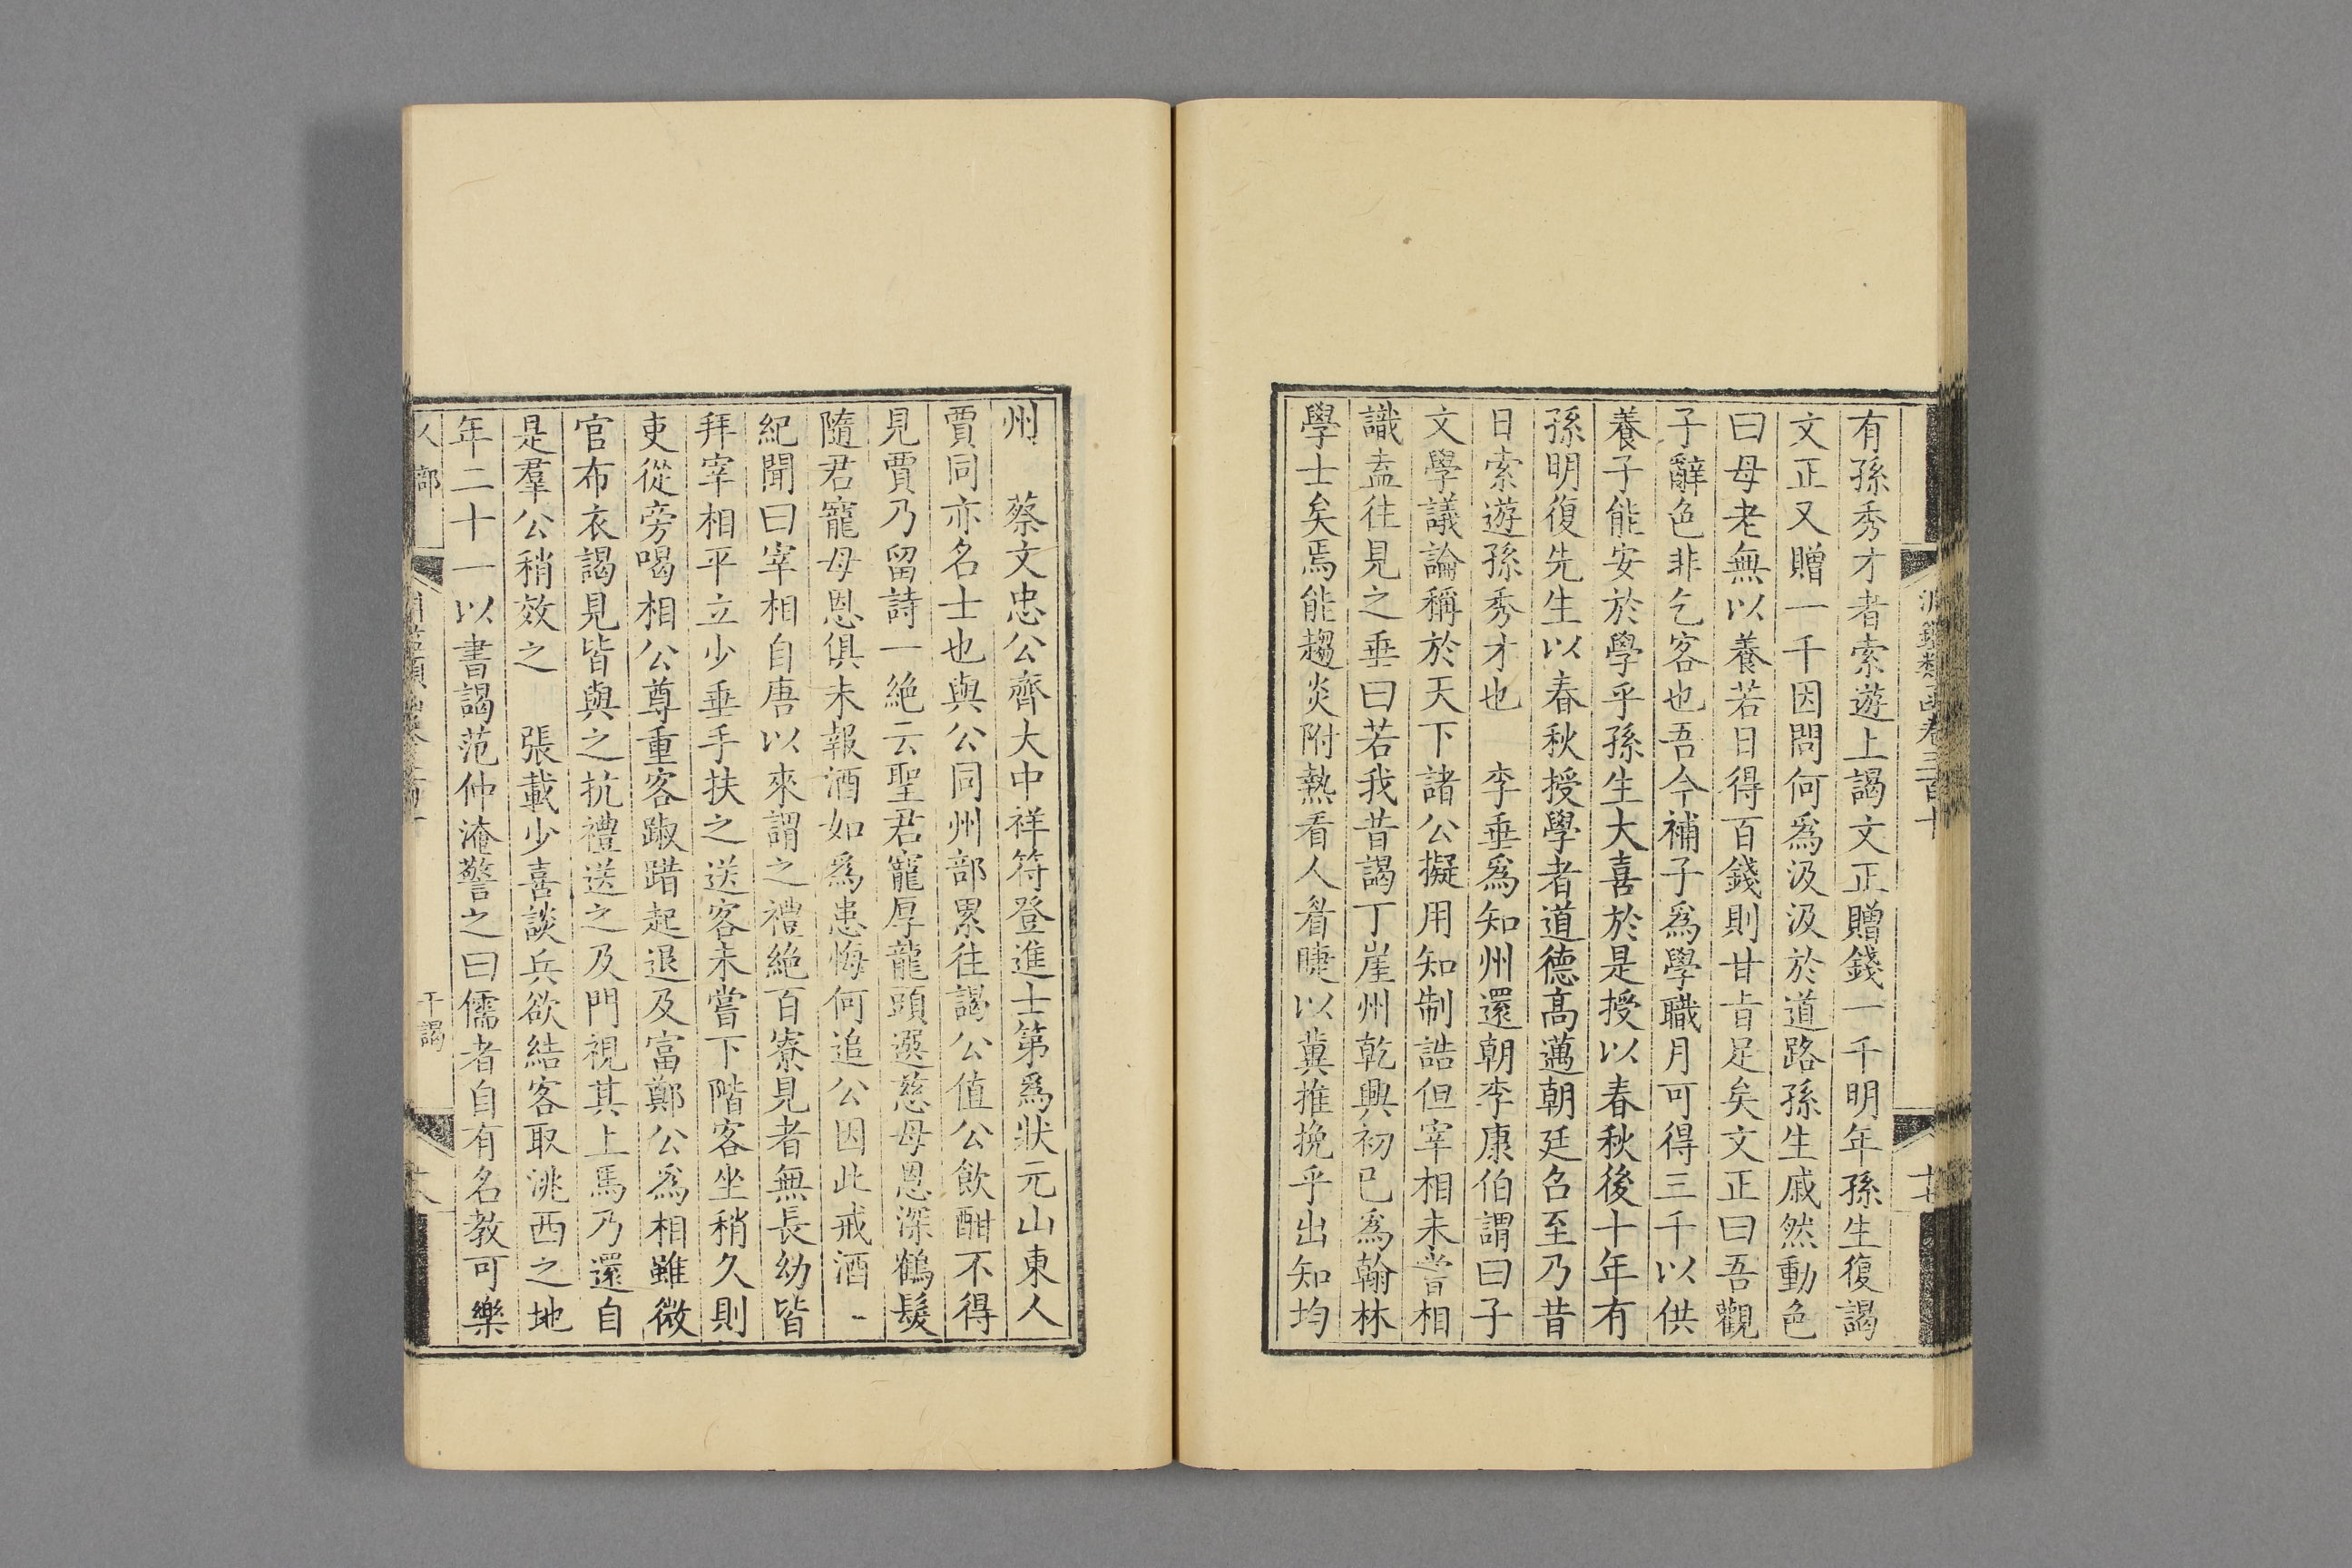 有孫秀才者索遊上謁文正贈錢一千明年孫生復謁
文正又贈一千因問何爲汲汲於道路孫生戚然動色
曰母老無以養若日得百錢則甘㫖足矣文正曰吾觀
子辭色非乞客也吾今補子爲學職月可得三千以供
養子能安於學乎孫生大喜於是授以春秋後十年有
孫明復先生以春秋授學者道德髙邁朝廷召至乃昔
日索遊孫秀才也　李垂爲知州還朝李康伯謂曰子
文學議論稱於天下諸公擬用知制誥但宰相未嘗相
識盍往見之垂曰若我昔謁丁崖州乾興初已爲翰林
學士矣焉能趨炎附熱看人睂睫以冀推挽乎出知均
州　蔡文忠公齊大中祥符登進士第爲狀元山東人
賈同亦名士也與公同州部累往謁公值公飲酣不得
見賈乃留詩一絶云聖君寵厚龍頭選慈母恩深鶴髮
隨君寵母恩俱未報酒如爲患悔何追公因此戒酒
紀聞曰宰相自唐以來謂之禮絶百寮見者無長幼皆
拜宰相平立少垂手扶之送客未嘗下階客坐稍久則
吏從旁喝相公尊重客踧踖起退及富鄭公爲相雖微
官布衣謁見皆與之抗禮送之及門視其上馬乃還自
是羣公稍效之　張載少喜談兵欲結客取洮西之地
年二十一以書謁范仲淹警之曰儒者自有名教可樂
人部
干謁